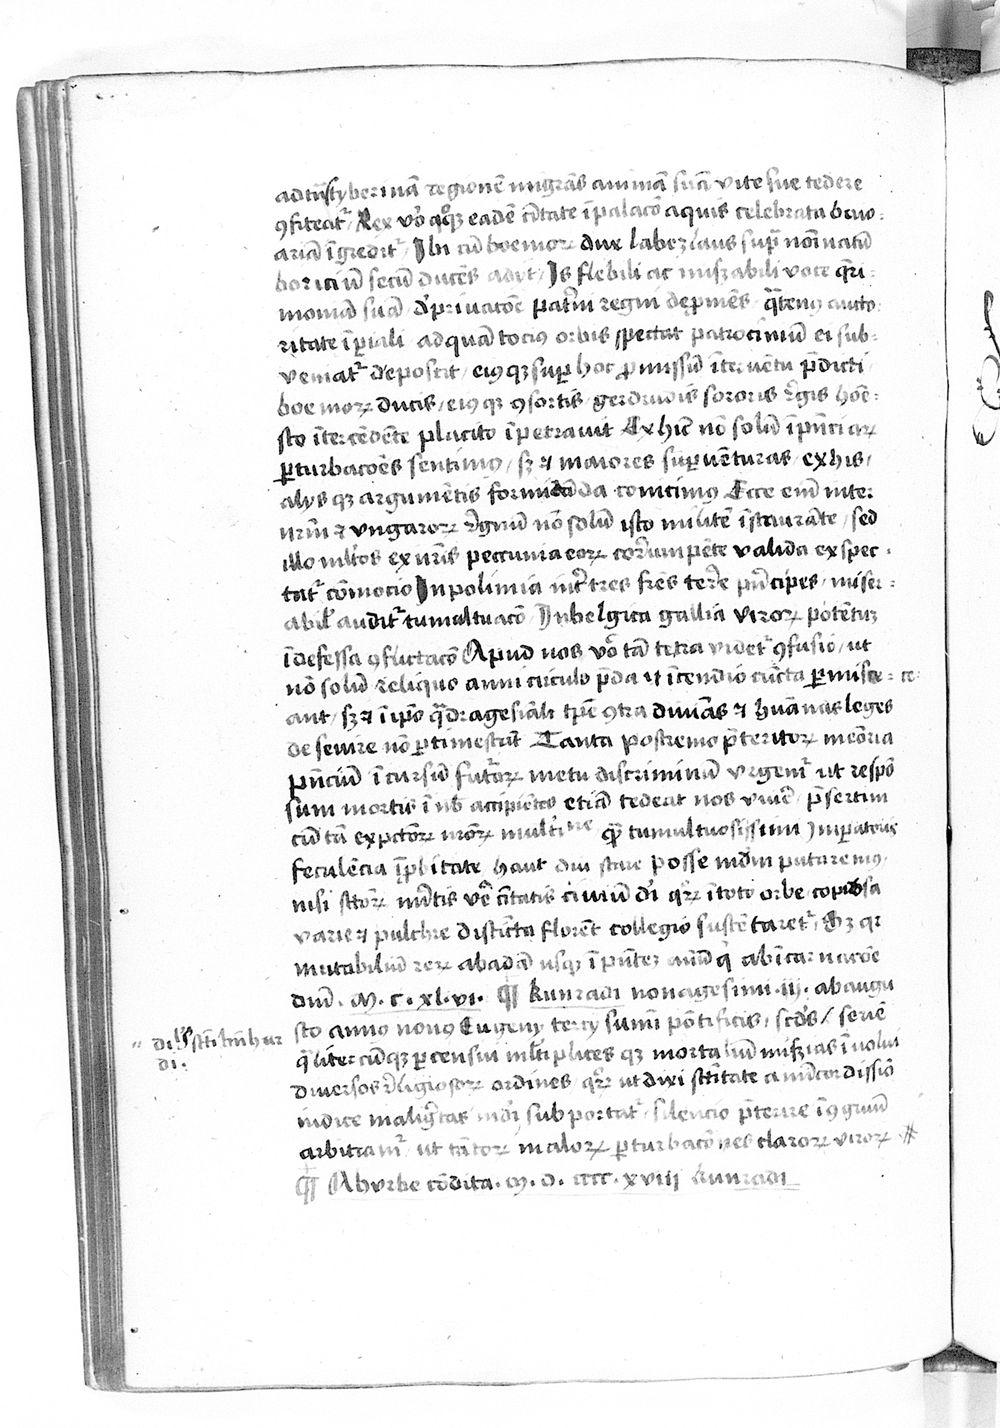 ad trāstyberinā regionē migrās animā suā vite sue tedere
ꝯfiteat᷑ / Rex v̊o qͦqꝫ eadē cītate ī palacō aquis celebrata bauo-
ariā īgredit᷑ / Ibi cū boemoꝝ dux labezlaus supͣ noīnatū
boriciū secū ducēs adiit / Is flebili ac misꝫabili voce q̄ri-
moniā suā / de p̄uacōe pat͛ni regni depͥmēs / q̄tenꝰ aucto-
ritate īp̲iali ad quā tociꝰ orbis spectat patrociniū ei sub-
veniat᷑ deposcit / eiꝰqꝫ sup̲ hoc ꝓmissū īteruētu p̄dicti /
boemoꝝ ducis / eiꝰqꝫ ꝯsortis / gerdrudis sororis regis hōe-
sto ītercedēte placito īpetrauit Ex hīc nō solū ī pn̄ciaꝝ
p̲turbacōes sentimꝰ / sꝫ ⁊ maiores sup̲uēturas / ex his /
alijsqꝫ argumētis formidāda conicimꝰ Ecce eīm inter
nrm̄ ⁊ vngaroꝝ regnū nō solū isto militē īstaurāte / sed
illo mltōs ex nrīs peccunia eoꝝ corrumpēte valida exspec-
tat᷑ cōmocio In polimia int͛ tres frēs terre pͥncipes / miser-
abil̕ audit᷑ tumaltuacō / In belgica gallia viroꝝ potētuꝫ
īdefessa ꝯflictacō Apud nos v̊o tā tetra videt᷑ ꝯfusio / ut
nō solū reliquo anni circulo p̄da ⁊ īcendio cūcta p̲misce- ce-
ant / sꝫ ⁊ ī ip̄o qͣdragesiāli tp̄e ꝯtra diuīas ⁊ hūanas leges
deseuire nō p̲timescūt Tanta postremo p̄teritoꝝ meōria
pn̄ciū īcursū futͦroꝝ metu discriminū vrgem᷑ ut respō
sum mortis ī nͦb accipiētes etiā tedeat nos viuē / p̄sertim
cū tā expctōꝝ nroꝝ multit͛ne qͣ tumultuosissimi īp̲atoris
feculēcia īꝓbitate haut diu stare posse mdm̄ putaremꝰ /
nisi sctōꝝ m̄itis vē cītatis ciuiū dī qͦꝝ ī toto orbe copiosa
varie ⁊ pulchre distīcta florēt collegio sustētaret᷑ / Sꝫ qr
mutabiliū reꝝ ab adā usqꝫ ī pn̄teꝫ annū qͥ ab īcarnacōe
dnī . M . c . xl . vi . ¶ Kunradi nonagesimi . iij . ab augu
sto anno nonꝰ Eugenij tercij sum̄i pōtificis / scd̕s / seriē
qͣliter cūqꝫ p̲censui mltīplices qꝫ mortaliū misꝫias īuolui
diuersos religiosoꝝ ordines qͦꝝ ut dixi sctītate a mīcordissīo
iudice malignitas mdī subportat᷑ / silencio p̄terire īꝯgruū
arbitram᷑ / ut tātoꝝ maloꝝ p̲turbacōnes claroꝝ viroꝝ #
¶ Ab vrbe cōdita . M . D . cccc . xviij kunradi